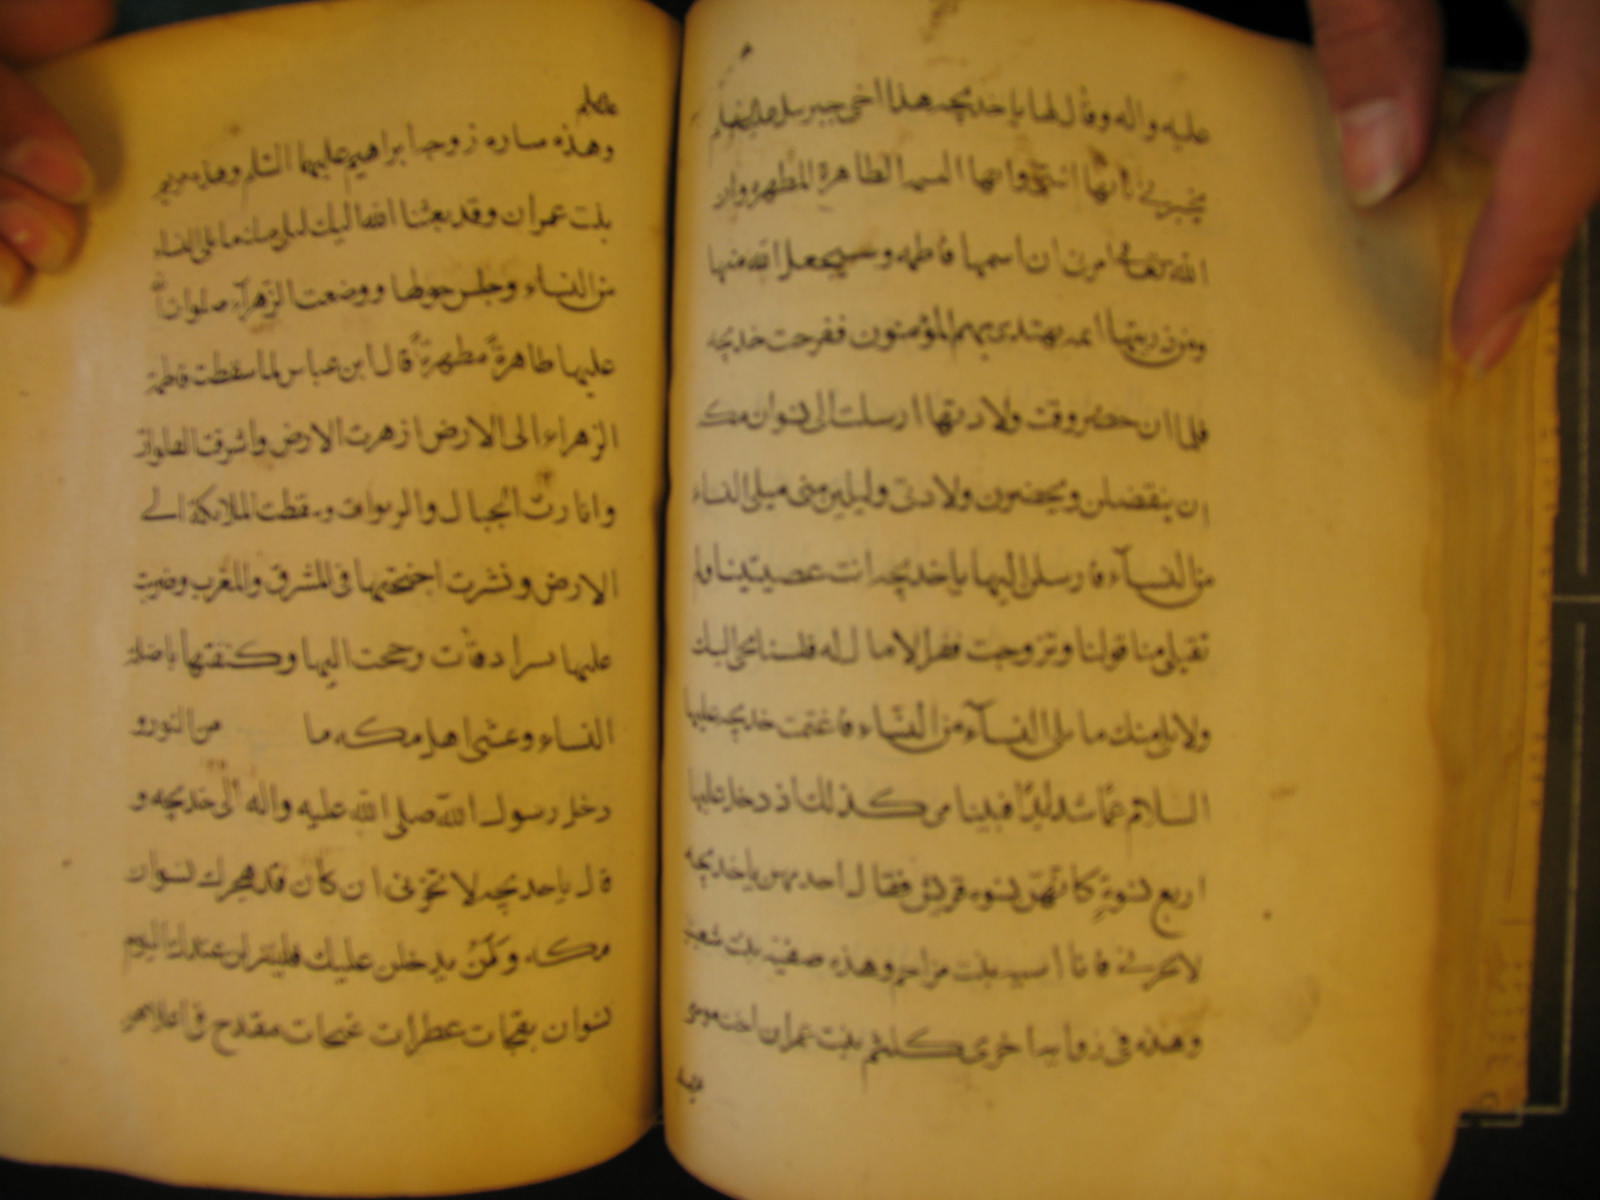 عليه واله وقال لها يا خديجه هذا اخى جبرئيل
يخبرني انها انثى وانها النسمه الطاهرة المطهره وان
الله تعالى امرنى ان اسميها فاطمه وسيجعل الله منها
ومن ذريتها ائمه يهتدى بهم المؤمنون ففرحت خديجه
فلما ان حضر وقت ولادتها ارسلت الى نسوان مكه
ان يتفضلن ويحضرن ولادتى وليلين منى ما يلى النساء
من النسآء فارسلن اليها يا خديجه انت عصيتينا ولم
تقبلى منا قولنا وتزوجت فقيرا لا مال له فلسنا نجى اليك
ولا نلى منك ما يلى النسآء من النسآء فاغتمت خديجه عليها
السلام غمّا شديدًا فبينا هى كذلك اذ دخل عليها
اربع نسوةٍ كانهن نسوه قريش فقال احديهن يا خديجه
لا تحزني فانا اسيه بنت مزاحم وهذه صفيّه بنت شعيب
وهذه فى روايه اخرى كلثم بنت عمران اخت موسى
وهذه
وهذه ساره زوجة ابراهيم عليهما السّلم وهذه مريم
بنت عمران وقد بعثنا الله اليك لنلى منك ما يلى النساء
من النساء وجلسن حولها ووضعت الزهرآء صلوات الله
عليها طاهرةً مطهرةً قال ابن عباس لما سقطت فاطمة
الزهراء الى الارض ازهرت الارض واشرقت الفلوات
وانارت الجبال والربوات وسقطت الملائكة الى
الارض ونشرت اجنحتها فى المشرق والمغرب وضربت
عليها سرادقات وجحت اليها وكنفتها
النساء وغشى اهل مكه ما من النور و
دخل رسول الله صلى الله عليه واله الى خديجه و
قال يا خديجه لا تحزنى ان كان قد هجرك نسوان
مكه ولَمْ يدخلن عليك فلينزلن عندك اليوم
نسوان بهجات عطرات غنجات